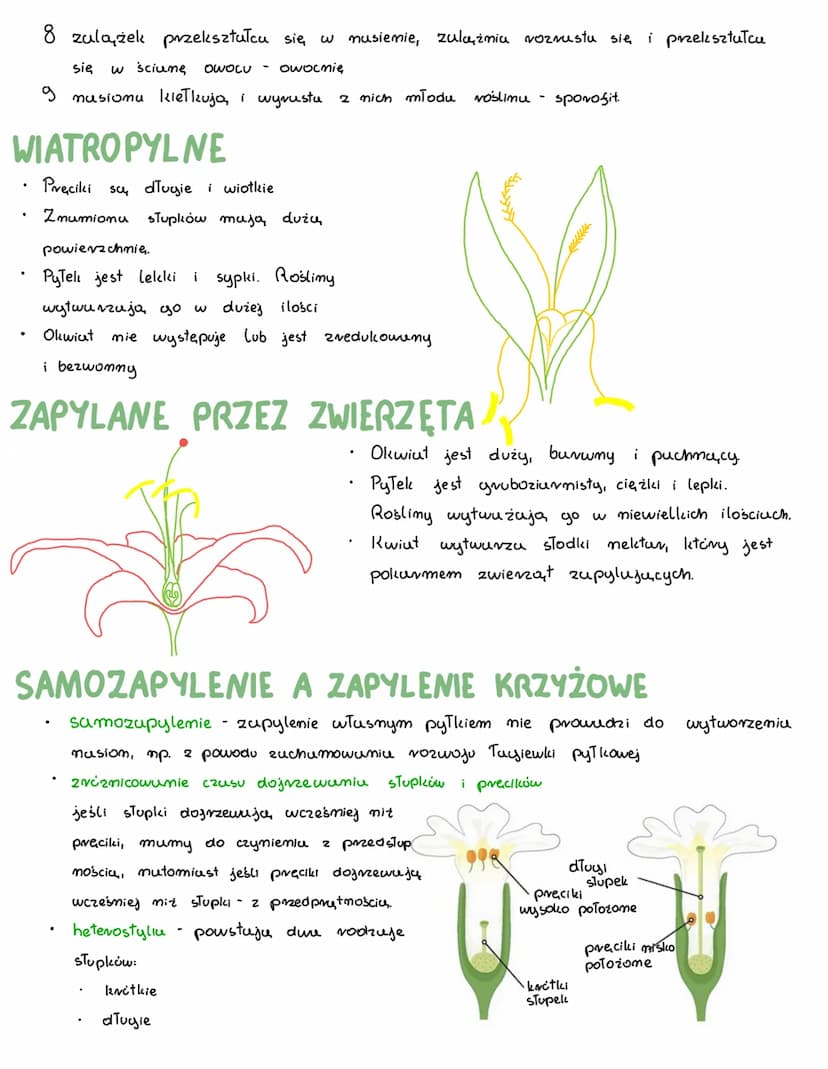 8 zalążek przekształca się w nasienie, zalążnia rozrasta się i przekształca
się w ścianę owocu - owocnię
9 nasiona kiełkują i wyrasta z nich młoda roślina - sporofit.
WIATROPYLNE
• Pręciki są długie i wiotkie
• Znamiona słupków mają dużą
powierzchnię.
• Pyłek jest lekki i sypki. Rośliny
wytwarzają go w dużej ilości
• Okwiat nie występuje lub jest zredukowany
i bezwonny
ZAPYLANE PRZEZ ZWIERZĘTA
• Okwiat jest duży, barwny i pachnący.
• Pyłek jest gruboziarnisty, ciężki i lepki.
Rośliny wytważają go w niewielkich ilościach.
• Kwiat wytwarza słodki nektar, który jest
pokarmem zwierząt zapylających.
SAMOZAPYLENIE A ZAPYLENIE KRZYŻOWE
• samozapylenie - zapylenie własnym pyłkiem nie prowadzi do wytworzenia
nasion, np. z powodu zachamowania rozwoju łagiewki pyłkowej
• zróżnicowanie czasu dojrzewania słupków i pręcików
jeśli słupki dojrzewają wcześniej niż
pręciki, mamy do czynienia z przedsłup
nością, natomiast jeśli pręciki dojrzewają
wcześniej niż słupki - z przedprątnością.
• heterostylia - powstają dwa rodzaje
słupków:
• krótkie
• długie
długi
słupek
pręciki
wysoko położone
pręciki nisko
położone
krótki
słupek